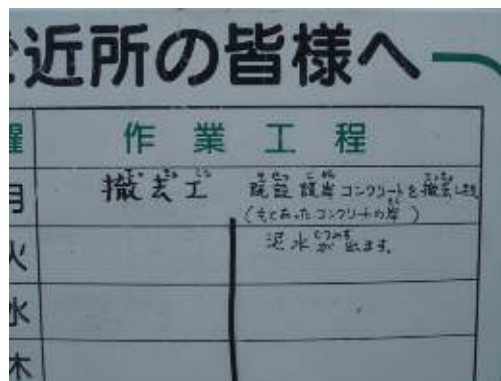 ご近所の皆様へ
曜 作業工程
月 撤去工 既設護岸コンクリートを撤去します
(もとあったコンクリートの岸)
火 泥水が出ます。
水
木